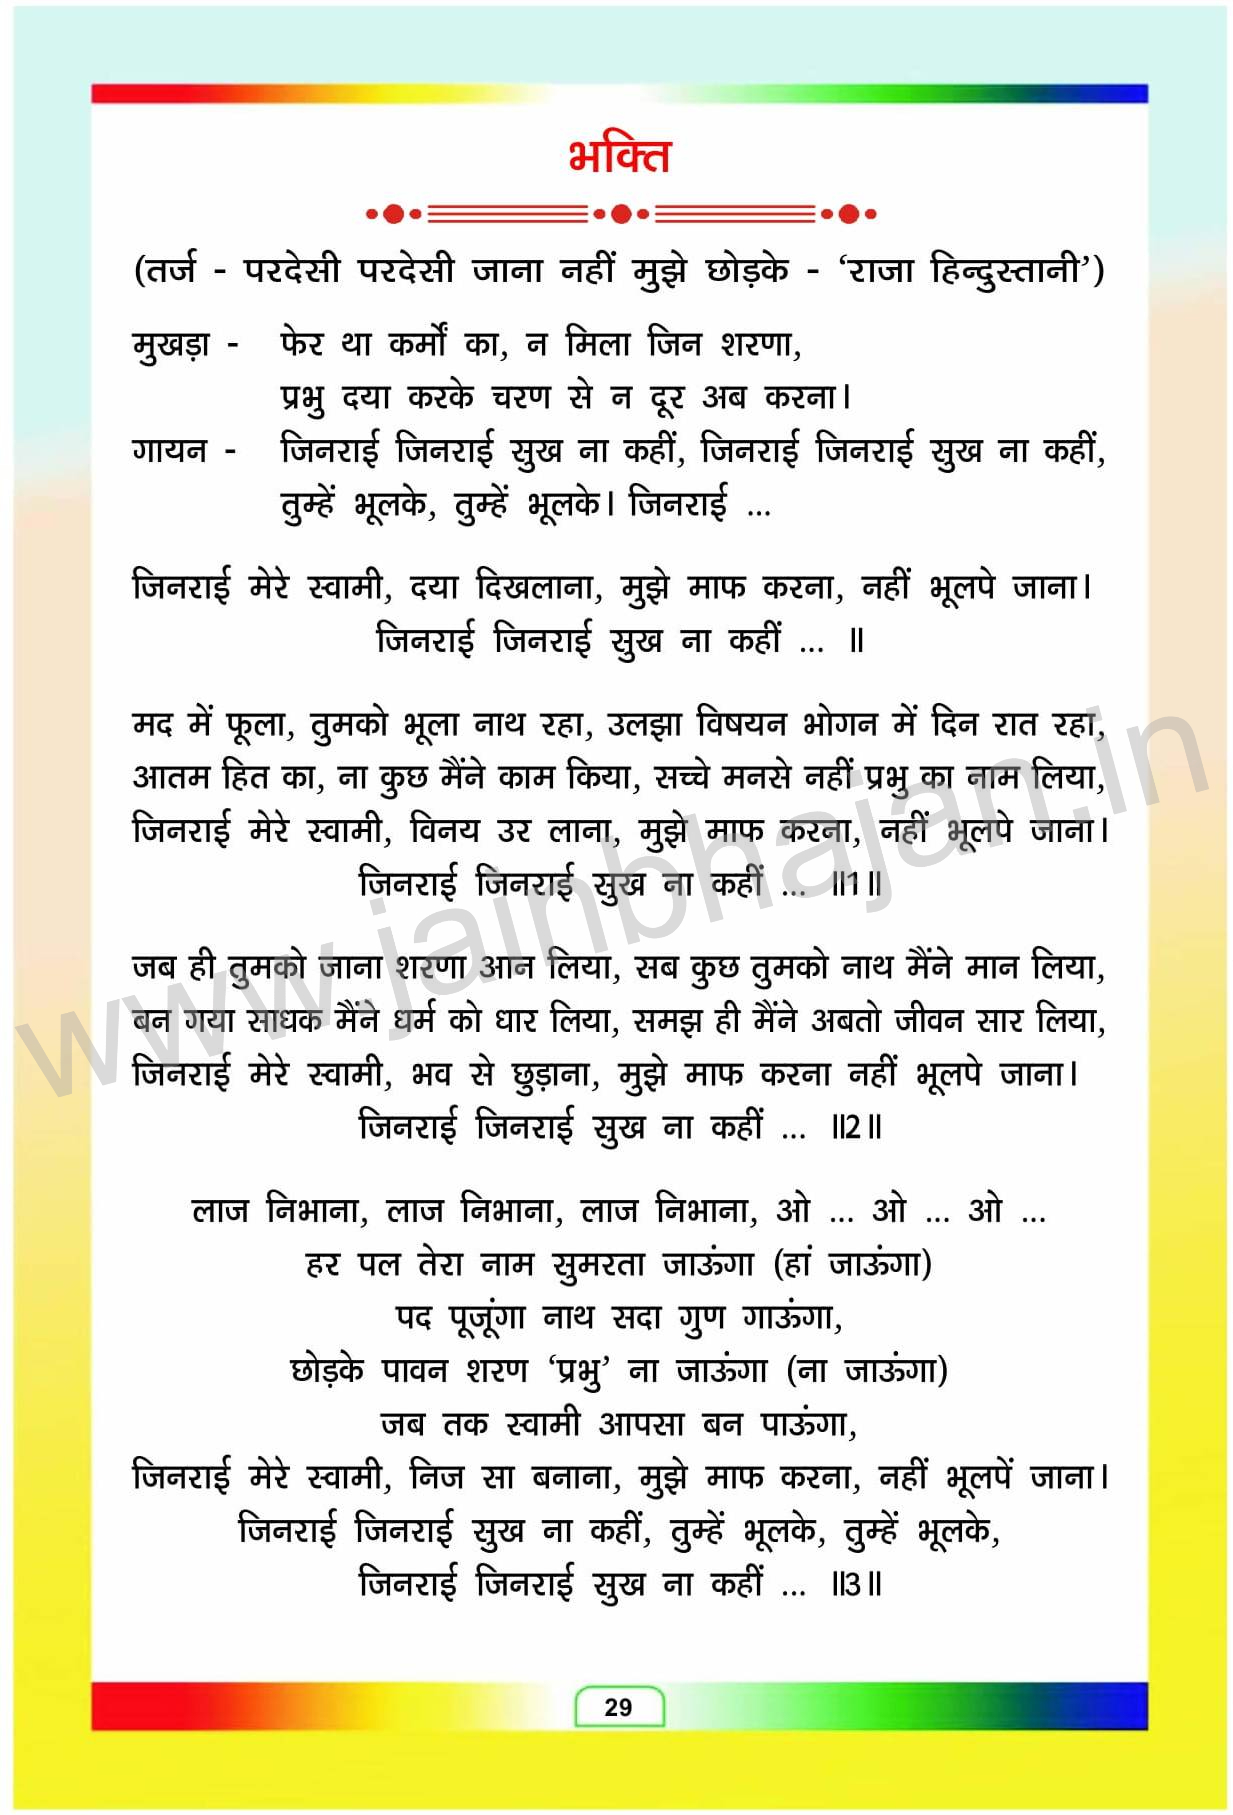 भक्ति
(तर्ज - परदेसी परदेसी जाना नहीं मुझे छोड़के - ‘राजा हिन्दुस्तानी’)
मुखड़ा - फेर था कर्मों का, न मिला जिन शरणा,
प्रभु दया करके चरण से न दूर अब करना।
गायन - जिनराई जिनराई सुख ना कहीं, जिनराई जिनराई सुख ना कहीं,
तुम्हें भूलके, तुम्हें भूलके। जिनराई ...
जिनराई मेरे स्वामी, दया दिखलाना, मुझे माफ करना, नहीं भूलपे जाना।
जिनराई जिनराई सुख ना कहीं ... ॥
मद में फूला, तुमको भूला नाथ रहा, उलझा विषयन भोगन में दिन रात रहा,
आतम हित का, ना कुछ मैंने काम किया, सच्चे मनसे नहीं प्रभु का नाम लिया,
जिनराई मेरे स्वामी, विनय उर लाना, मुझे माफ करना, नहीं भूलपे जाना।
जिनराई जिनराई सुख ना कहीं ... ॥1॥
जब ही तुमको जाना शरणा आन लिया, सब कुछ तुमको नाथ मैंने मान लिया,
बन गया साधक मैंने धर्म को धार लिया, समझ ही मैंने अबतो जीवन सार लिया,
जिनराई मेरे स्वामी, भव से छुड़ाना, मुझे माफ करना नहीं भूलपे जाना।
जिनराई जिनराई सुख ना कहीं ... ॥2॥
लाज निभाना, लाज निभाना, लाज निभाना, ओ ... ओ ... ओ ...
हर पल तेरा नाम सुमरता जाऊंगा (हां जाऊंगा)
पद पूजूंगा नाथ सदा गुण गाऊंगा,
छोड़के पावन शरण ‘प्रभु’ ना जाऊंगा (ना जाऊंगा)
जब तक स्वामी आपसा बन पाऊंगा,
जिनराई मेरे स्वामी, निज सा बनाना, मुझे माफ करना, नहीं भूलपें जाना।
जिनराई जिनराई सुख ना कहीं, तुम्हें भूलके, तुम्हें भूलके,
जिनराई जिनराई सुख ना कहीं ... ॥3॥
29
www.jainbhajan.in